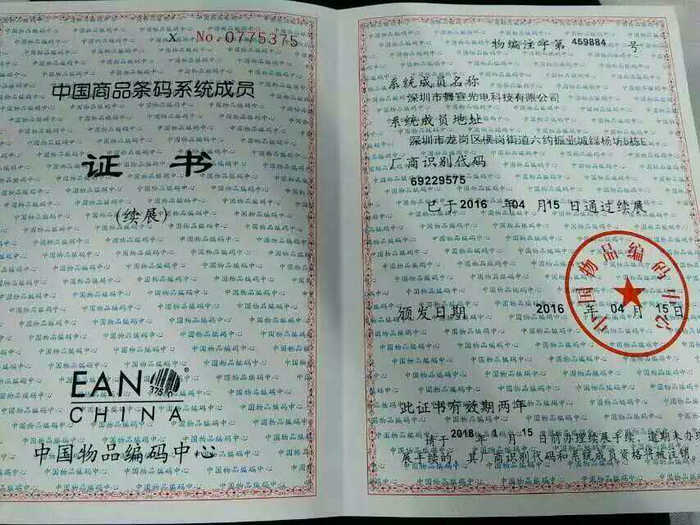 X No.0775375
中国商品条码系统成员
证 书
(续展)
EAN
CHINA
中国物品编码中心
物编注字第 459884 号
系统成员名称
深圳市舞宣光电科技有限公司
系统成员地址
深圳市龙岗区横岗街道六约振业城绿杨坊5栋E
厂商识别代码
69229575
已于 2016 年 04 月 15 日通过续展
中国物品编码中心
颁发日期 2016 年 04 月 15 日
此证书有效期两年
请于 2018 年 月 15 日前办理续展手续，逾期未办
续展手续的，其厂商识别代码和系统成员资格将被注销。